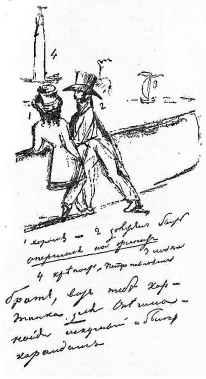 4
2
3
1
1 хорош — 2 должен быть
опершися на гранит 3 лодка
4 крепость Петропавловская
брат, вот тебе кар-
тинка для Онегина —
найди искусный и быстр
карандаш